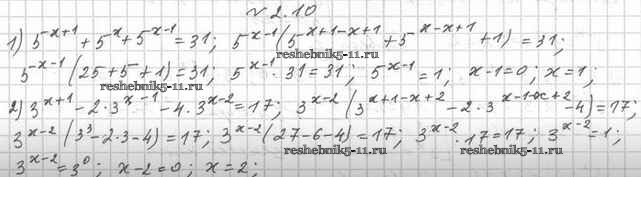 № 2.10
1) 5^{x+1} + 5^x + 5^{x-1} = 31; 5^{x-1}(5^{x+1-x+1} + 5^{x-x+1} + 1) = 31;
reshebnik5-11.ru
5^{x-1}(25+5+1) = 31; 5^{x-1} · 31 = 31; 5^{x-1} = 1; x-1=0; x=1;
2) 3^{x+1} - 2·3^{x-1} - 4·3^{x-2} = 17; 3^{x-2}(3^{x+1-x+2} - 2·3^{x-1-x+2} - 4) = 17;
reshebnik5-11.ru
3^{x-2}(3^3 - 2·3 - 4) = 17; 3^{x-2}(27-6-4) = 17; 3^{x-2} · 17 = 17; 3^{x-2} = 1;
reshebnik5-11.ru
3^{x-2} = 3^0; x-2=0; x=2;